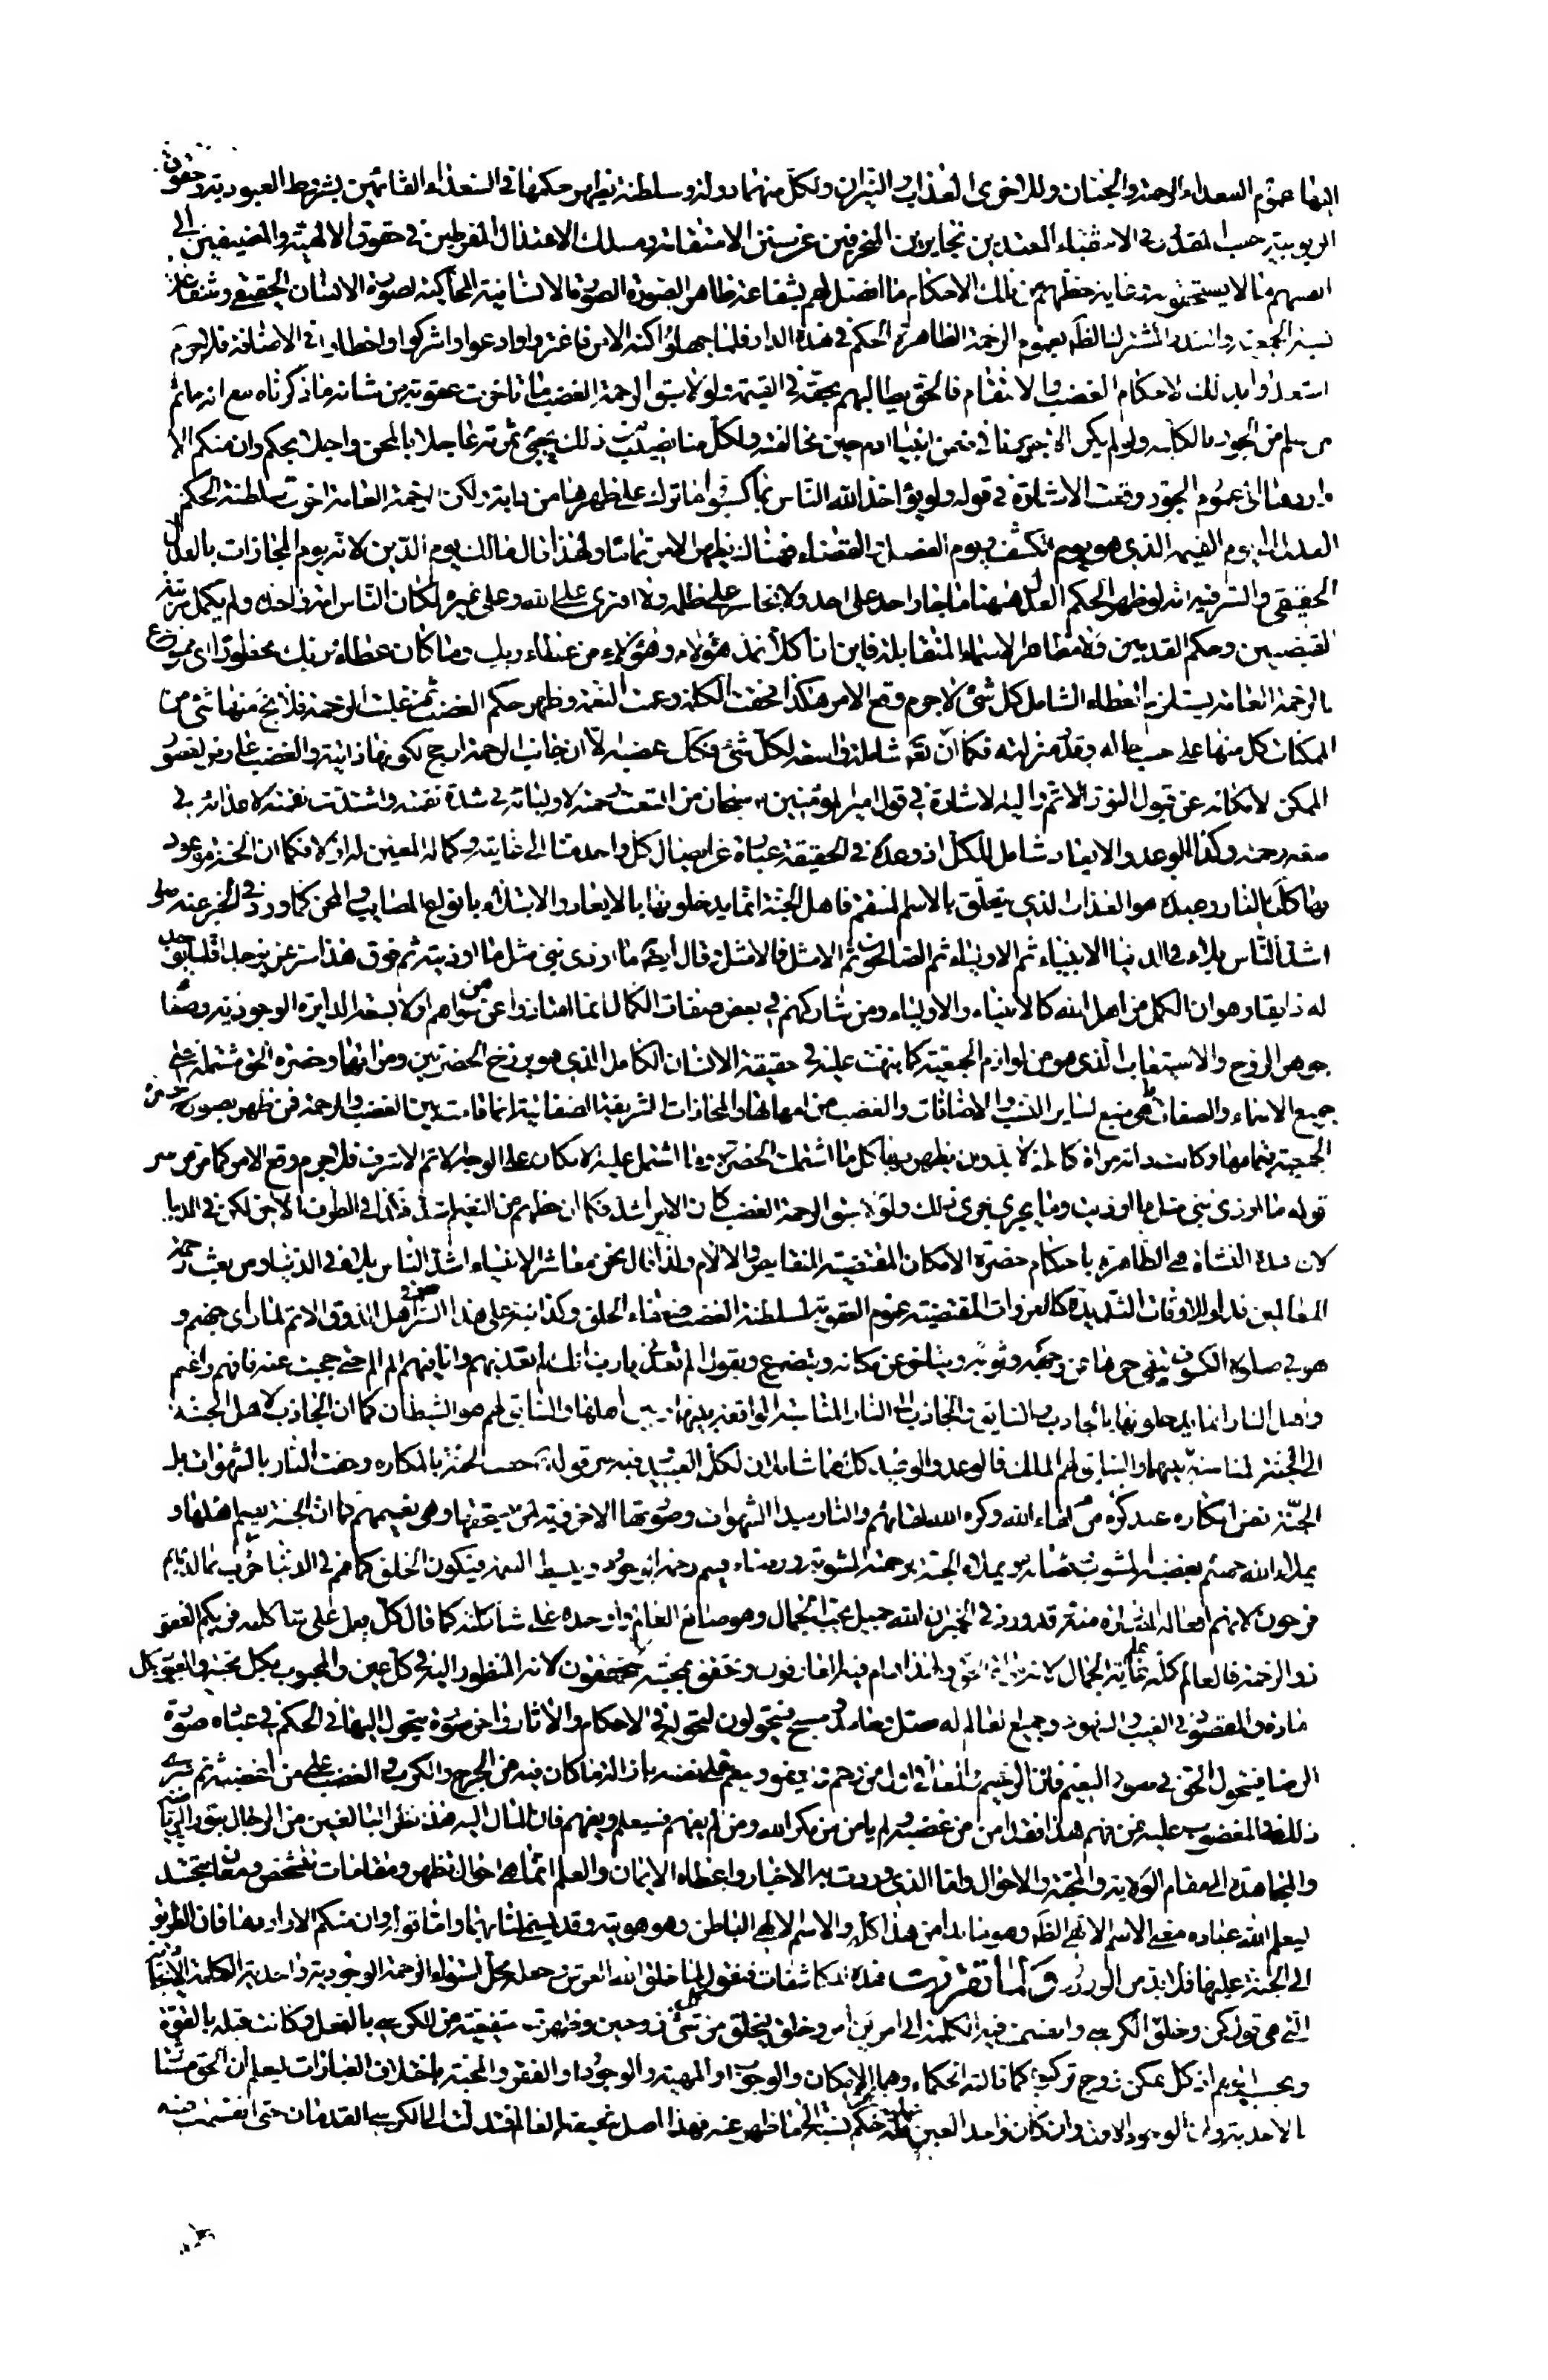 اليها عموم السعداء الرحمة والجنان وللاخرى العذاب والنيران ولكل منهما دولة وسلطنة يظهر حكمها في السعداء القائمين بشروط العبودية وحقوق
الربوبية حسب المقدور في الاشقياء المعتدين الجايرين المنحرفين عن سنن الاستقامة ومسلك الاعتدال المفرطين في حقوق الالهية والمضيفين الى
انفسهم ما لا يستحقونه وغاية حظهم من تلك الاحكام ما اتصل لهم بشفاعة ظاهر الصورة الصورة الانسانية المحاكية لصورة الانسان الحقيقي وشفاعة
نسبة الجمعية والقدر المشترك الظ بعموم الرحمة الظاهرة الحكم في هذه الدار فلما جهلوا كنه الامر فاغتروا وادعوا واشركوا واخطاوا في الاضافة فلاجرم
استعدوا بذلك لاحكام الغضب والانتقام فالحق يطالبهم بحقه في القيمة ولولا سبق الرحمة الغضب ما تاخرت عقوبة من شانه ما ذكرناه مع انه ما ثم
من سلم من الجور بالكلية ولو لم يكن الا جورنا في ضمن ابينا ادم حين مخالفته ولكل منا نصيب من ذلك يجني ثمرته عاجلا بالمحن واجلا بحكم وان منكم الا
واردها الى عموم الجور وقعت الاشارة في قوله ولو يؤاخذ الله الناس بما كسبوا ما ترك على ظهرها من دابة ولكن الرحمة العامة اخرت سلطنة الحكم
العدل الى يوم القيمة الذي هو يوم الكشف ويوم الفصل والقضاء فهناك يظهر الامر تماما ولهذا قال مالك يوم الدين لانه يوم المجازات بالعدل
الحقيقي والسر فيه انه لو ظهر الحكم العدل هيهنا ما جار احد على احد ولا تجاسر على ظلمه ولا افترى على الله وعلى غيره ولكان الناس امة واحدة ولم يكمل مرتبة
القبضتين وحكم القدمين ولا مظاهر الاسماء المتقابلة فاين انا كلا نمد هؤلاء وهؤلاء من عطاء ربك وما كان عطاء ربك محظورا اي ممنوعا
فالرحمة العامة يستلزم العطاء الشامل كل شئ لاجرم وقع الامر هكذا فحقت الكلمة وعمت النعمة وظهر حكم الغضب ثم غلبت الرحمة فلا يخ منها شئ من
الممكنات كل منها على حسب حاله وقدر منزلته فكما ان شاملة واسعة لكل شئ فكك غضبه الا ان جانب الرحمة ارجح لكونها ذاتية والغضب عارض لقصور
الممكن لامكانه عن قبول النور الاتم واليه الاشارة في قول امير المؤمنين سبحان من اتسعت رحمته لاوليائه في شدة نقمته واشتدت نقمته لاعدائه في
سعة رحمته وكذا الوعد والايعاد شامل للكل اذ وعده في الحقيقة عبارة عن ايصال كل واحد منا الى غايته وكماله المعين له ازلا فكما ان الجنة موعود
بها كك النار وعيده هو العذاب الذي يتعلق بالاسم المنتقم فاهل الجنة انما يدخلونها بالايعاد والابتلاء بانواع المصايب والمحن كما ورد في الخبر عنه صلى
اشد الناس بلاء في الدنيا الانبياء ثم الاولياء ثم الصالحون ثم الامثل فالامثل وقال ايضا ما اوذي نبي مثل ما اوذيت ثم فوق هذا سر عزيز جدا قلما يوجد
له ذايقا وهو ان الكمل من اهل الله كالانبياء والاولياء ومن شاركهم في بعض صفات الكمال انما امتازوا عن من سواهم اولا بسعة الدايرة الوجودية وصفاء
جوهر الروح والاستيعاب الذي هو من لوازم الجمعية كما نبهت عليه في حقيقة الانسان الكامل الذي هو برزخ الحضرتين ومرآتهما وحضرة الحق مشتملة على
جميع الاسماء والصفات هي منبع لساير النسب والاضافات والغضب من امهاتها والمحازات الشريفة الصفاتية انما قامت بين الغضب والرحمة فمن ظهر بصورة
الجمعية بتمامها وكانت ذاته مرآة كاملة لا بد وان يظهر فيها كل ما اشتملت الحضرة وما اشتمل عليه الامكان على الوجه الاتم الاشرف فلاجرم وقع الامر كما مر من سر
قوله ما اوذي نبي مثل ما اوذيت وما يجري مجرى ذلك ولولا سبق الرحمة الغضب كان الامر اشد فكما ان حظهم من النعيم في الطرف الاخر لكن في الدنيا
لان هذه النشاة هي الظاهرة باحكام حضرة الامكان المقتضية للنقايص والالام ولذا قال نحن معاشر الانبياء اشد الناس بلاء في الدنيا ومن بعث رحمة
للعالمين فداوا للاوقات الشديدة كالغزوات المقتضية عموم العقوبة لسلطنة الغضب ضعفاء الخلق وكذا نبه على هذا السر اهل الذوق الاتم لما راى جهنم و
هو في صلوة الكسوف يتقي حرها عن وجهه وثوبه ويتاخر عن مكانه ويتضرع ويقول الم تعدني يا رب انك لا تعذبهم وانا فيهم الم الم حتى حجبت عنه فافهم واغتنم
واهل النار انما يدخلونها بالجاذب والسايق والجاذب الى النار المناسبة الواقعة بينها وبين اهلها والسايق لهم هو الشيطان كما ان الجاذب لاهل الجنة
الى الجنة المناسبة بينهما والسايق لهم الملك فالوعد والوعيد كلاهما شاملان لكل العبيد فيه سر قوله حفت الجنة بالمكاره وحفت النار بالشهوات
الجنة نفس المكاره عند كره من لقاء الله وكره الله لقائهم والنار مبدا الشهوات وصورتها الاخروية لمن يستحقها وهي نعيمهم كما ان الجنة نعيم اهلها و
يملاء الله جهنم بغضبه المشوب بقضائه ويملاء الجنة برحمته المشوبة ورضاه فيعم رحمة الوجود ويبسط النعم فيكون الخلق كما هم في الدنيا كل حزب بما لديهم
فرحون لانهم افعاله قد ورد في الخبر ان الله جميل يحب الجمال وهو صانع العالم واوجده على شاكلته كما قال كل يعمل على شاكلته فربكم الغفور
ذو الرحمة فالعالم كله على غاية الجمال لانه مرآة الحق ولهذا هام فيه العارفون وتحقق بمحبته المحققون لانه المنظور اليه في كل عين والمحبوب بكل محبة والمعبود بكل
عبادة والمقصود في الغيب والشهود وجميع العالم له مصل وداع ومسبح فيتحولون لتحوله في الاحكام والاثار واخر صورة يتحول اليها في الحكم في عباده صورة
الرضا فيتحول الحق في صورة النعيم فان الرحيم والمعافي اول من يرحم ويعفو وينعم على نفسه بازالة ما كان فيه من الحرج والكرب والغضب على من اغضبه ثم سرى
ذلك في المغضوب عليه فمن فهم هذا فقد امن من غضبه ولم يامن من مكر الله ومن لم يفهم فسيعلم ويفهم فان المال اليه هذا نظر البالغين من الرجال بنور الرياضة
والمجاهدة الى مقام الولاية والمحبة والاحوال واما الذي وردت به الاخبار واعطاه الايمان والعلم انما هي احوال تظهر ومقامات تشخص ومعان تتجسد
ليعلم الله عباده معنى الاسم الالهي الظ وهو ما بدا من هذا كله والاسم الالهي الباطن وهو هويته وقد تسمى لنا بهما واما قوله وان منكم الا واردها فان الطريق
الى الجنة عليها فلا بد من الورود ولما تقررت هذه المكاشفات فنقول لما خلق الله العرش وجعله محل استواء الرحمة الوجودية واحدية الكلمة الايجادية
التي هي قول كن وخلق الكرسي وانقسمت فيه الكلمة الى امرين امر وخلق ليخلق من كل شئ زوجين وظهرت شفعية من الكرسي بالفعل وكانت قبله بالقوة
وبحسب انه كل ممكن زوج تركيبي كما قالته الحكماء وهما الامكان والوجوب او المهية والوجود او الفقر والمحبة باختلاف العبارات ليعلم ان الحق مستا
بالاحدية وان الوجود الاول وان كان واحد العين فله حكم نسبة الى ما ظهر عنه فهذا اصل شفعية العالم فتدلت الى الكرسي القدمان حتى انقسمت فيه